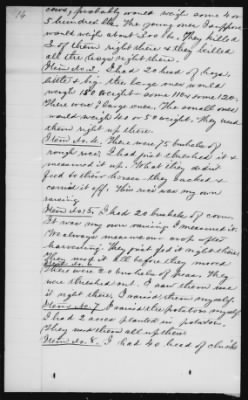 16
cows, probably would weigh some 4 or
5 hundred lbs. The young ones I suppose
would weigh about 200 lbs. They killed
2 of them right there & they killed
all the hogs right there.
Item No. 3. I had 20 head of hogs,
little & big. The large ones would
weigh 150 weight - some 110 & some 120.
There were 7 large ones. The small ones
would weigh 40 or 50 weight. They used
them right up there.
Item No. 4. There were 75 bushels of
rough rice. I had just thrashed it &
measured it up. What they didn't
feed to their horses they sacked &
carried it off. This rice was my own
raising.
Item No. 5. I had 20 bushels of corn.
It was my own raising. I measured it.
We always measure our crop after
harvesting. They just fed it right there.
They used it all before they moved.
Item No. 6
There were 20 bushels of peas. They
were thrashed out. I saw them use
it right there. I raised them myself.
Item No. 7. I raised the potatoes myself.
I had 2 acres planted in potatoes.
They used them all up there.
Item No. 8. I had 40 head of chicks